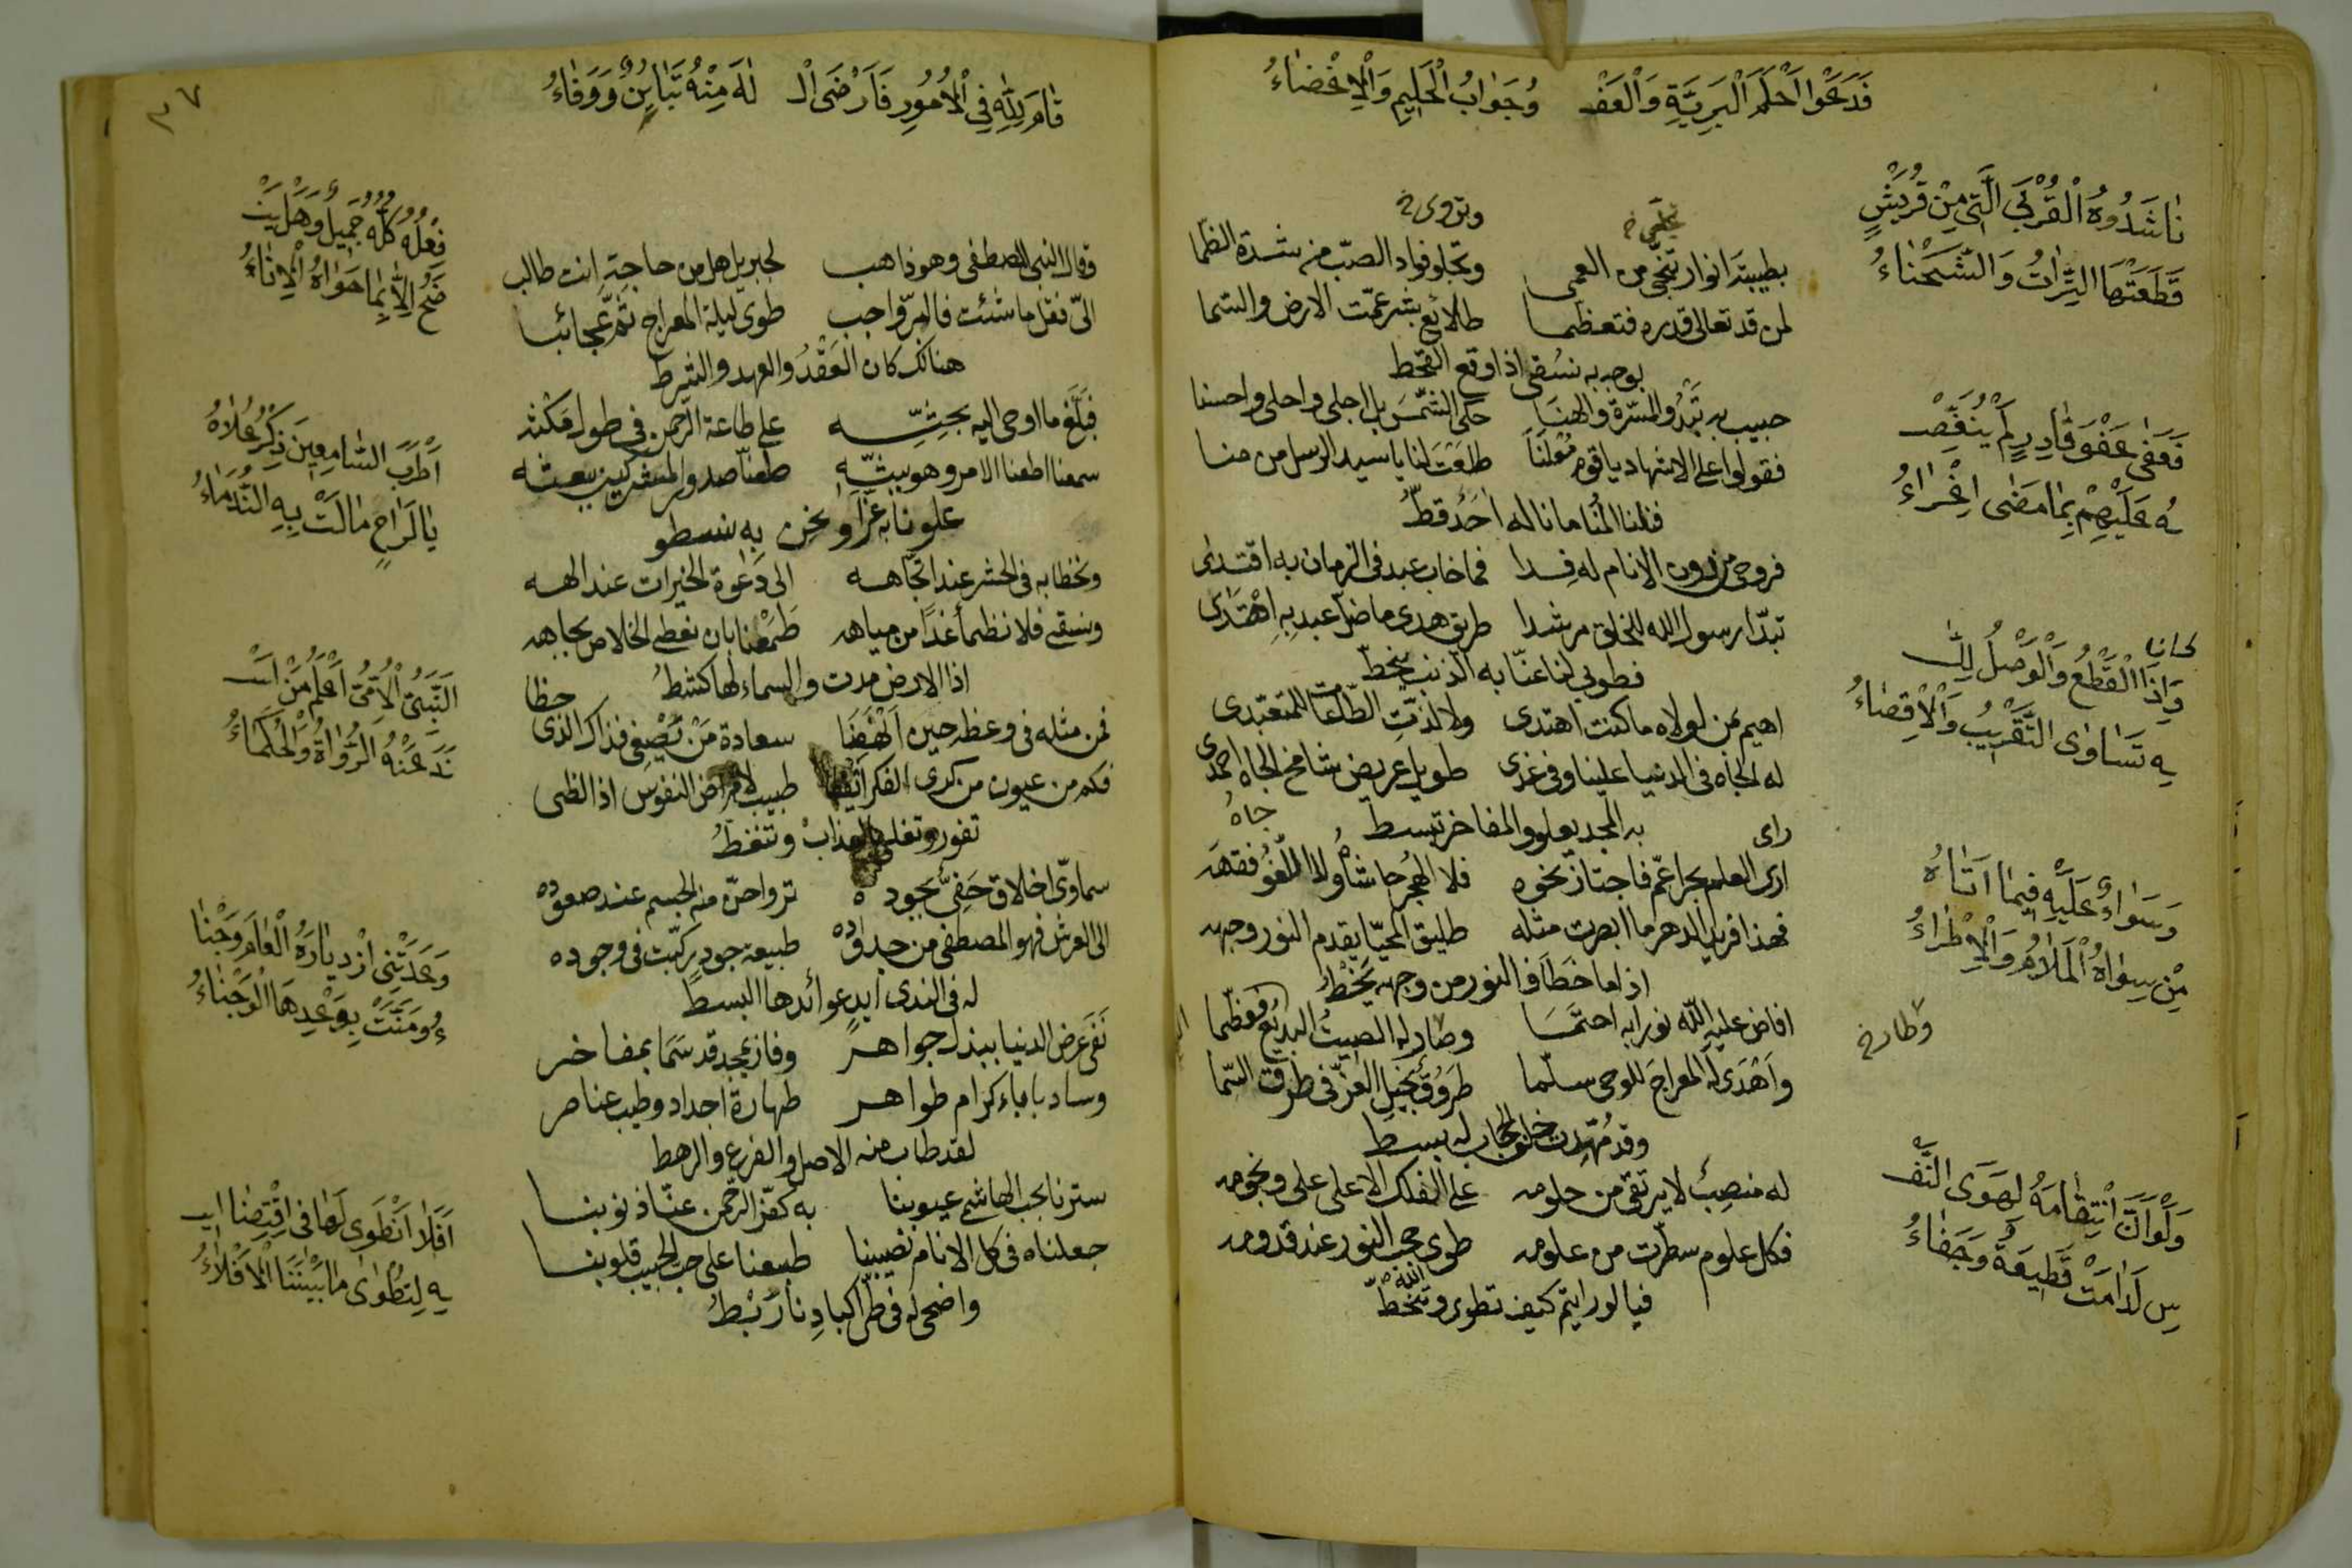 فَدَعَوْا اَحْلَمَ الْبَرِيَّةِ وَالْعَفْـ وُجَوَابُ الْحَلِيمِ وَالْاِغْضَاءُ
نَاشَدُوهُ الْقُرْبَى الَّتِي مِنْ قُرَيْشٍ
قَطَعَتْهَا التِّرَاتُ وَالشَّحْنَاءُ
فَعَفَى عَفْوَ قَادِرٍ لَمْ يُنَغِّصْـ
ـهُ عَلَيْهِمْ بِمَا مَضَى اِغْرَاءُ
كانا
وَاِذَا الْقَطْعُ وَالْوَصْلُ لِلّٰـ
ـهِ تَسَاوَى التَّقْرِيْبُ وَالْاِقْصَاءُ
وَسَوَاءٌ عَلَيْهِ فِيمَا اَتَاهُ
مِنْ سِوَاهُ الْمَلَامُ وَالْاِطْرَاءُ
وَلَوْ اَنَّ انْتِقَامَهُ لِهَوَى النَّفْـ
ـسِ لَدَامَتْ قَطِيعَةٌ وَجَفَاءُ
وتروى خ
بطيبة انوار تنجّى من العمى وتجلو فواد الصبّ من شدة الظما
لمن قد تعالى قدره فتعظما طلائع بشر عمّت الارض والسّما
بوجه به نسقى اذا وقع القحط
حبيب به تَبْدُو المسرّة والهنا حكى الشّمسَ بل اجلى واحلى واحسنا
فقولوا على الاشهاد يا قوم مُعْلَنَا طلعَتَ لنا يا سيد الرسل من منا
فنلنا المُنا ما ناله احدٌ قطُّ
فروحى من دون الانام له فدا فما خاب عبد فى الزمان به اقتدى
تبدّا رسول الله للخلق مرشدا طريق هدى ما ضلّ عبد به اهْتَدَى
فطوبى لنا عنّا به الذنب ينحطّ
اهيم بمن لولاه ما كنت اهتدى ولا لذّت الطّاعات للمتعبّدى
له الجاه فى الدنيا علينا وفى غدى طويل عريض شامخ الجاه احمدى
به المجد يعلو والمفاخر تبسط
جاهُ
راى
ارى العلم بحرا عمّ فاجتاز نحوه فلا الهُجر حاشاهُ ولا اللّغوُ فقهَه
فهذا فريد الدهر ما ابصرت مثله طليق المحيّا يقدم النور وجهه
اذا ما خطا فالنور من وجهه يَخْطُ
افاض عليه اللّه نورا به احتمَا وصار له الصيتُ البديع فعظّما
وطار خ
واَهْدَى له المعراجَ للوحى سلّما طَروُقٌ بخيل العزّ فى طرق السّما
وقد مُهّدت خلف الحجاب له بسط
له منصبٌ لا يرتقى من حلومه على الفلك الاعلى على ونجومه
فكل علوم سطّرت من علومه طوى حجب النور عند قدومه
فيا لو رايتم كيف تطوى وتنحطّ
قَامَ لِلّٰهِ فِي الْاُمُورِ فَاَرْضَى الْـ لٰهَ مِنْهُ تَبَايُنٌ وَوَفَاءُ
٣٧
فِعْلُهُ كُلُّهُ جَمِيلٌ وَهَلْ يَنْـ
ـضَحُ اِلَّا بِمَا حَوَاهُ الْاِنَاءُ
اَطْرَبَ السَّامِعِينَ ذِكْرُ عُلَاهُ
يَا لَرَاحٍ مَالَتْ بِهِ النُّدَمَاءُ
اَلنَّبِيُّ الْاُمِّيُّ اَعْلَمُ مَنْ اَسْـ
ـنَدَ عَنْهُ الرُّوَاةُ وَالْحُكَمَاءُ
وَعَدَتْنِى ازْدِيَارَهُ الْعَامَ وَجْنَا
ءُ وَمَنَّتْ بِوَعْدِهَا الْوَجْنَاءُ
اَفَلَا اَنْطَوِى لَهَا فِى اقْتِضَائِيـ
ـهِ لِتُطْوٰى مَا بَيْنَنَا الْاَفْلَاءُ
وقال النبى المصطفى وهو ذاهب لجبريل هل من حاجة انت طالب
الىّ فقل ما شئت فالبرّ واجب طوى ليلة المعراج ثَمّ عجائبا
هنالك كان العَقْدُ والعهد والشرط
فبلّغ ما اوحى اليه بحثّه على طاعة الرحمن فى طول مَكْثه
سمعنا اطعنا الامر وهو يبثّه طعنّا صدور المشركين ببعثه
علونا به عزّا ونحن به نسطو
ونحظا به فى الحشر عند اتجاهه الى دَعوة الخيرات عند الهه
ونسقى فلا نظمأ غدًا من مياهه طَمِعْنا بان نعطى الخلاص بجاهه
اذا الارض مدت والسماء لها كشطُ
حظا
فمن مثله فى وعظه حين اَنْهَضَا سعادة مَنْ يُصْغِى فذاك الذى
فكم من عيون من كرى الفكر ايقظا طبيب لامراض النفوس اذا لظى
تفور وتغلى بالعذاب وتنغطُ
سماوىّ اخلاق حَفِىٌّ بجوده ترواحنّ منه الجسم عند صعوده
الى العرش فهو المصطفى من جدوده طبيعة جود ركّبت فى وجوده
له فى الندى ايدٍ عوائدها البسط
نَفَى عَرَض الدنيا ببذل جواهر وفاز بمجد قد سَمَا بمفاخر
وساد باباء كرام طواهر طهارة اجداد وطيب عناصر
لقد طاب منه الاصل والفرع والرهط
سترنا بحب الهاشمى عيوبنا به كفّر الرحمن عنّا ذنوبنا
جعلناه فى كل الانام نصيبنا طبعنا على حب الحبيب قلوبنا
واضحى له فى طىّ اكبادنا رَبْطُ